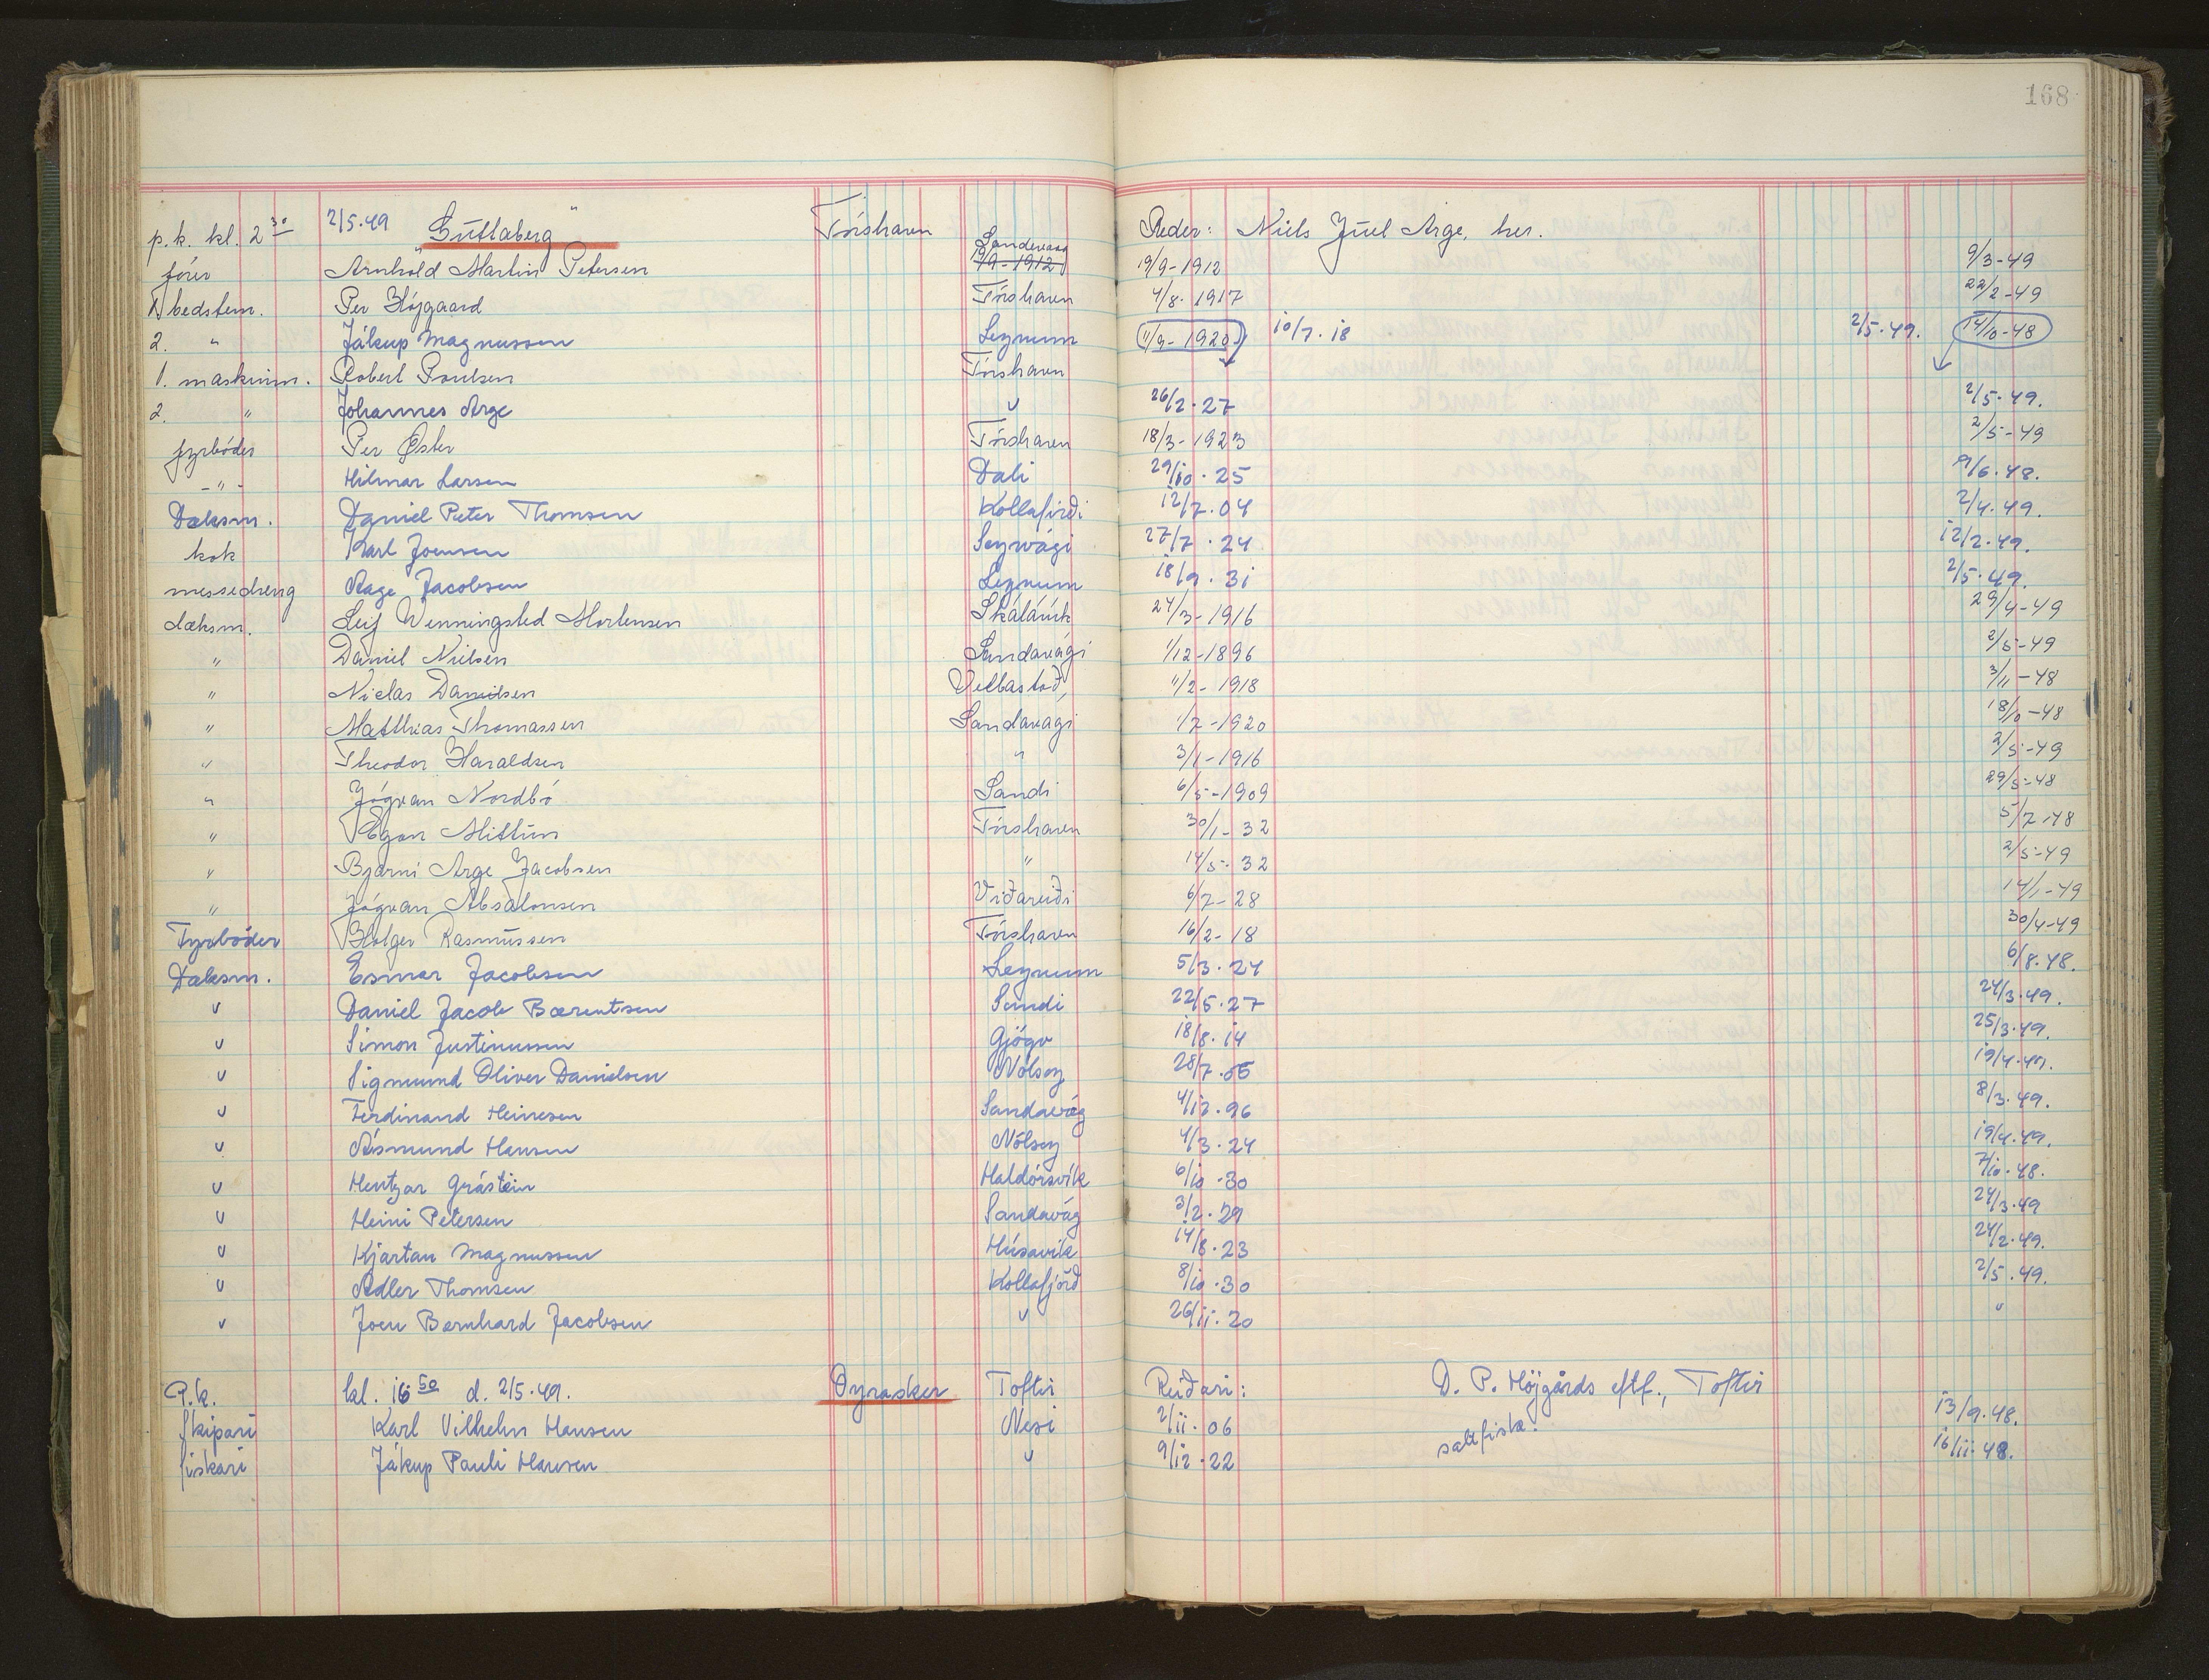 168
p.k. kl. 2 30 2/5.49 "Gullaberg" Tórshavn Reder: Niels Juel Arge, her.
fører Arnhold Martin Petersen Sandevaag 19/9-1912 19/9-1912 9/3-49
1 bedstem. Per Højgaard Tórshavn 4/8-1917 22/2-49
2. " Jákup Magnussen Leynum 11/9-1920 10/7.18 2/5.49. 14/10-48
1. maskinm. Robert Poulsen Tórshavn
2. " Johannes Arge " 26/2.27 2/5.49.
fyrbøder Per Øster Tórshavn 18/3-1923 2/5-49
-"- Hilmar Larsen Dali 29/10.25 9/6.48.
Dæksm. Daniel Peter Thomsen Kollafirði 12/7.04 2/4.49.
kok Karl Joensen Seyrvági 27/7.24 12/2.49.
messedreng Aage Jacobsen Leynum 18/9.31 2/5.49.
dæksm. Leif Wenningsted Mortensen Skálánik 24/3-1916 29/4-49
" Daniel Nielsen Sandavági 1/12-1896 2/5-49
" Niclas Danielsen Velbastað, 11/2-1918 3/11-48
" Matthias Thomassen Sandavagi 1/7-1920 18/10-48
" Theodor Haraldsen " 3/1-1916 2/5-49
" Jógvan Nordbó Sandi 6/5-1909 29/5-48
" Egon Mittún Tórshavn 30/1-32 5/7-48
" Bjarni Arge Jacobsen " 14/5-32 2/5-49
" Jógvan Absalonsen Viðareiði 6/7-28 14/1-49
Fyrbøder Holger Rasmussen Tórshavn 16/2-18 30/4-49
Dæksm. Esmar Jacobsen Leynum 5/3.24 6/8.48.
" Daniel Jacob Bærentsen Sandi 22/5.27 24/3.49.
" Simon Justinussen Gjógv 18/8.14 25/3.49.
" Sigmund Oliver Danielsen Nólsoy 28/7.06 19/4.49.
" Ferdinand Heinesen Sandavág 4/12.96 8/3.49.
" Ásmund Hansen Nólsoy 4/3.24 19/4.49.
" Hentzar Grástein Haldórsvík 6/10.30 7/10.48.
" Heini Petersen Sandavág 3/2.29 24/3.49
" Kjartan Magnussen Húsavík 14/8.23 24/2.49.
" Adler Thomsen Kollafjørð 8/10.30 2/5.49.
" Joen Bernhard Jacobsen " 26/11.20 "
P.k. kl. 16 50 d. 2/5.49. Dyrasker Toftir Reiðari: D. P. Højgårds eftf., Toftir
Skipari Karl Vilhelm Hansen Nesi 2/11.06 saltfisk. 13/9.48.
fiskari Jákup Pauli Hansen " 9/12.22 16/11.48.